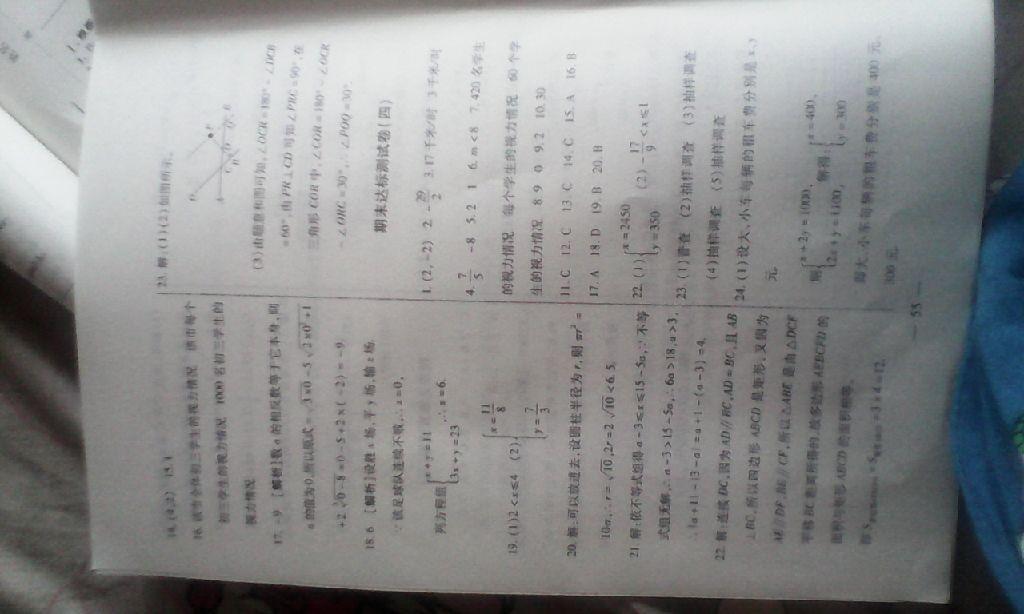 14. (4,2) 15. 1
16. 该市全体初三学生的视力情况 该市每个
初三学生的视力情况 1000名初三学生的
视力情况
17. -9 [解析]数a的相反数等于它本身,则
a的值为0,所以原式=
18. 6 [解析]设胜x场,平y场,输z场.
∵该足球队连续不败,∴z=0,
列方程组{x+y=11 3x+y=23 ,∴x=6.
19. (1)2<x≤4 (2){x=11/8 y=7/3
20. 解:可以放进去,设圆柱半径为r,则πr²=
10π,∴r=√10,2r=2√10<6.5.
21. 解:依不等式组得a-3≤x≤15-5a,∵不等
式组无解,∴a-3>15-5a,∴6a>18,a>3,
∴|a+1|-|3-a|=a+1-(a-3)=4.
22. 解:连接BC,因为AD∥BC,AD=BC,且AB
⊥BC,所以四边形ABCD是矩形,又因为
AE∥DF,BE∥CF,所以△ABE是由△DCF
平移BC距离所得的,故多边形AEBCFD的
面积与矩形ABCD的面积相等.
=3×4=12.
23. 解:(1)(2)如图所示.
(3)由题意和图可知,∠OCR=180°-∠DCB
=60°.由PR⊥CD可知∠PRC=90°.在
三角形COR中,∠COR=180°-∠OCR
-∠ORC=30°,∴∠POQ=30°.
期末达标测试卷(四)
1. (2,-2) 2. -29/2 3. 17千米/时 3千米/时
4. 7/5 -8 5. 2 1 6. m<8 7. 420名学生
的视力情况 每个学生的视力情况 60个学
生的视力情况 8. 9 0 9. 2 10. 30
11. C 12. C 13. C 14. C 15. A 16. B
17. A 18. D 19. B 20. B
22. (1){x=2450 y=350 (2)-17/9<x≤1
23. (1)普查 (2)抽样调查 (3)抽样调查
(4)抽样调查 (5)抽样调查
24. (1)设大、小车每辆的租车费分别是x、y
元.
则{x+2y=1000, 2x+y=1100, 解得:{x=400, y=300
即大、小车每辆的租车费分别是400元、
300元.
— 55 —